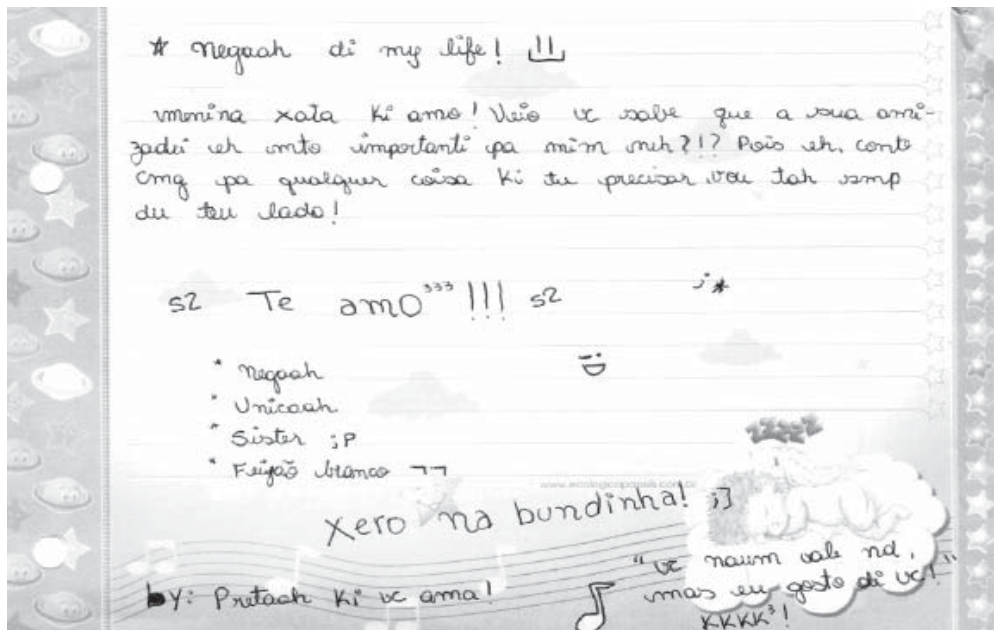 * Negaah di my life!
menina xata Ki amo! Veio vc sabe que a sua ami-
zadi eh mto importanti pa mim neh?!? Pois eh, conte
cmg pa qualquer coisa Ki tu precisar, vou tah smp
du teu lado!
s2 Te amo³³³!!! s2 ;*
* Negaah
* Unicaah
* Sister ;P
* Feijão branco ¬¬
zzzzz
www.ecologicopapeis.com.br
Xero na bundinha! ;]
"vc naum vale nd,
mas eu gosto di vc!"
KKKK³!
by: Pretaah Ki vc ama!